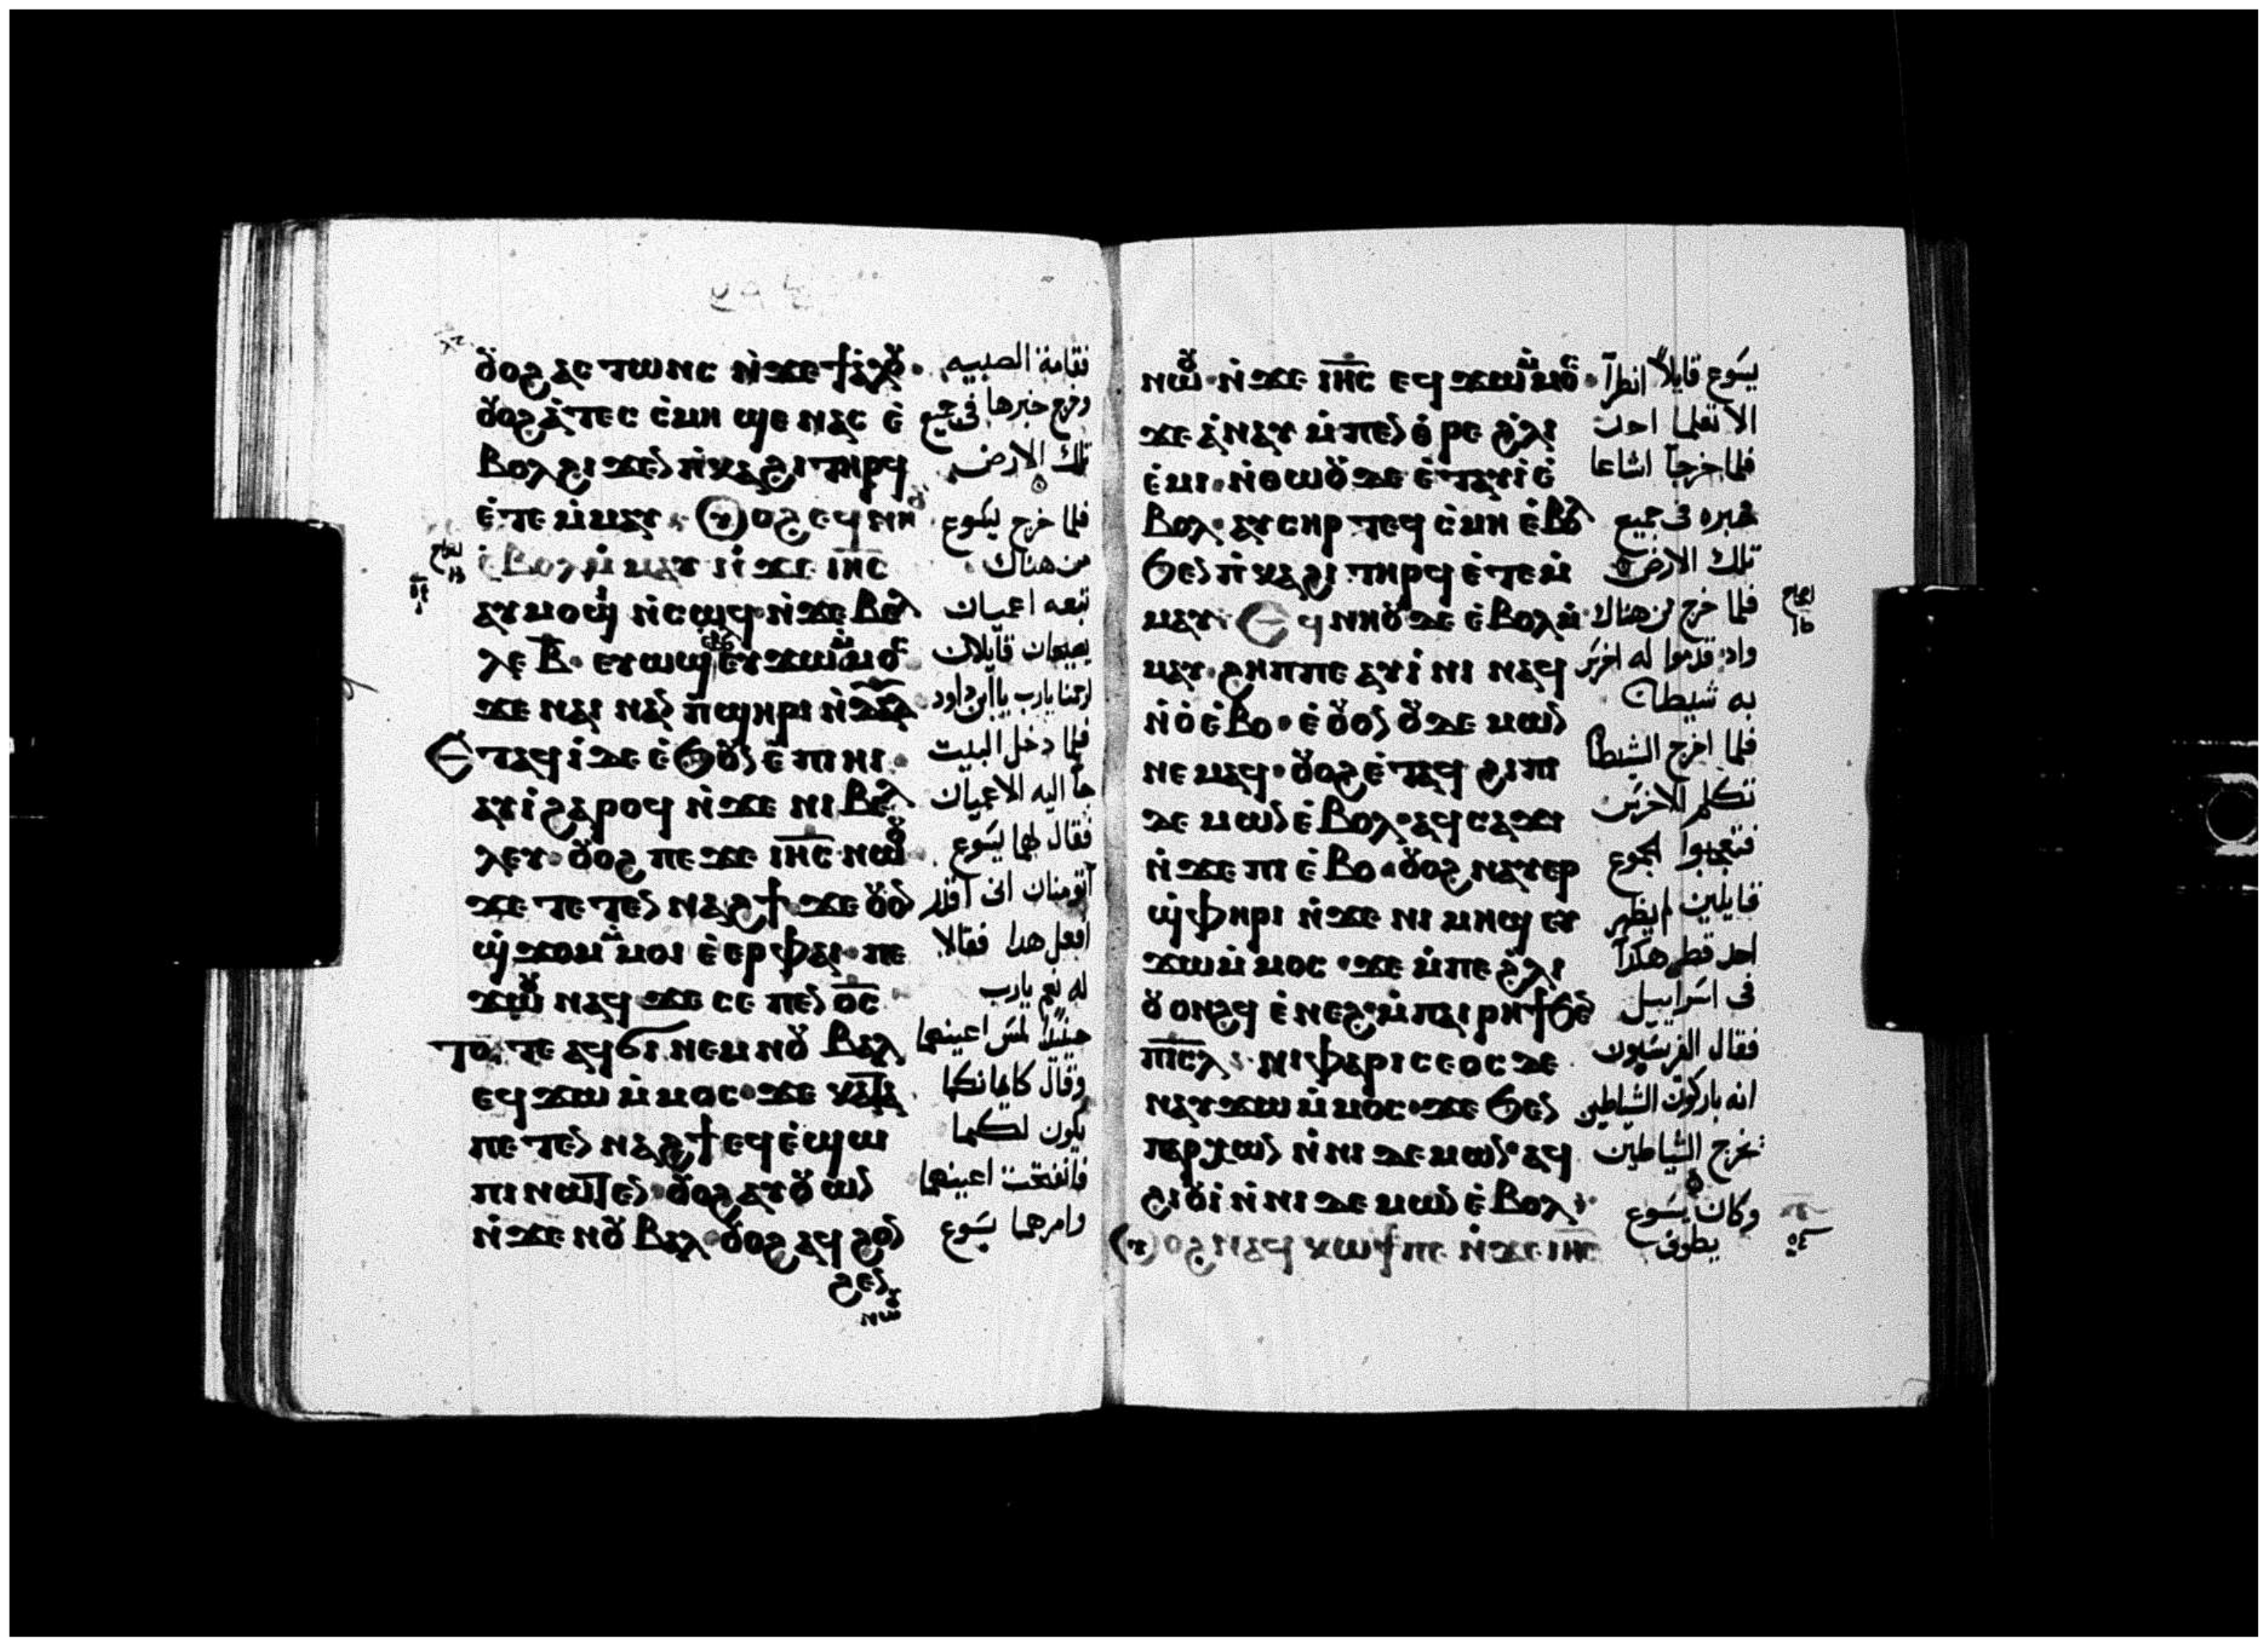 ⲟ̆ⲟϩ ⲁⲥ ⲧⲱⲛⲥ ⲛ̀ϫⲉ ϯⲁ̀ⲗⲟ̆·
ⲟ̆ⲟϩ ⲁ̀ⲧⲉⲥ ⲥ̀ⲙⲏ ϣⲉ ⲛⲁⲥ ⲉ̀
ⲃⲟⲗ ϩⲓϫⲉⲛ ⲡ̀ⲕⲁϩⲓ ⲧⲏⲣϥ
ⲉ̀ⲧⲉ ⲙ̀ⲙⲁⲩ· ⲟⲩⲟϩ ⲉϥ ⲛⲏⲟ̆
ⲉ̀ⲃⲟⲗ ⲙ̀ⲙⲁⲩ ⲛ̀ϫⲉ ⲓⲏ̅ⲥ̅
ⲁⲩⲙⲟϣⲓ ⲛ̀ⲥⲱϥ ⲛ̀ϫⲉ ⲃⲉⲗ
ⲗⲉ ⲃ̅· ⲉⲩⲱϣ ⲉ̀ⲃⲟⲗ ⲉⲩϫⲱ ⲙ̀ⲙⲟⲥ
ϫⲉ ⲛⲁⲓ ⲛⲁⲛ ⲡ̀ϣⲏⲣⲓ ⲛ̀ⲇⲁ̅ⲇ̅
ⲉⲧⲁϥ ⲓ̀ ⲇⲉ ⲉ̀ϧⲟ̆ⲛ ⲉ̀ ⲡⲓ ⲏⲓ·
ⲁⲩⲓ̀ ϩⲁⲣⲟϥ ⲛ̀ϫⲉ ⲛⲓ ⲃⲉⲗ
ⲗⲉⲩ· ⲟ̆ⲟϩ ⲡⲉϫⲉ ⲓⲏ̅ⲥ̅ ⲛⲱⲟ̆
ϫⲉ ⲧⲉⲧⲉⲛ ⲛⲁϩϯ ϫⲉ ⲟ̆ⲟⲛ
ϣ̀ϫⲟⲙ ⲙ̀ⲙⲟⲓ ⲉ̀ⲉⲣ ⲫⲁⲓ· ⲡⲉ
ϫⲱⲟ̆ ⲛⲁϥ ϫⲉ ⲥⲉ ⲡⲉⲛ ⲟ̅ⲥ̅
ⲧⲟⲧⲉ ⲁϥϭⲓ ⲛⲉⲙ ⲛⲟ̆ ⲃⲁⲗ
ⲉϥϫⲱ ⲙ̀ⲙⲟⲥ· ϫⲉ ⲕⲁⲧⲁ
ⲡⲉⲧⲉⲛ ⲛⲁϩϯ ⲉϥⲉ̀ϣⲱ
ⲡⲓ ⲛⲱⲧⲉⲛ· ⲟ̆ⲟϩ ⲁⲩⲟ̆ⲱⲛ
ⲛ̀ϫⲉ ⲛⲟ̆ ⲃⲁⲗ· ⲟ̆ⲟϩ ⲁϥ ϩⲟⲛ
ϩⲉⲛ
ⲛⲱⲟ̆
فقامة الصبيه
وخرج خبرها فى جميع
تلك الارض
فلما خرج يسوع
من هناك
تبعه اعميان
يصيحان قايلان
ارحمنا يارب ياابن داود
فلما دخل البيت
جا اليه الاعميان
فقال لهما يسوع
أتومنان انى اقدر
افعل هدا فقالا
له نعم يارب
حينيدا لمس اعينهما
وقال كايمانكما
يكون لكما
فانفتحت اعينهما
وامرهما يسوع
ⲛⲱⲟ̆· ⲛ̀ϫⲉ ⲓⲏ̅ⲥ̅ ⲉϥϫⲱ ⲙ̀ⲙⲟⲥ·
ϫⲉ ⲁ̀ⲛⲁⲩ ⲙ̀ⲡⲉⲛⲑ̀ⲣⲉ ϩ̀ⲗⲓ
ⲉ̀ⲙⲓ· ⲛ̀ⲑⲱⲟ̆ ⲇⲉ ⲉ̀ⲧⲁⲩⲓ̀ ⲉ̀
ⲃⲟⲗ· ⲁⲩⲥⲏⲣ ⲧⲉϥ ⲥ̀ⲙⲏ ⲉ̀ⲃⲟⲗ
ϧⲉⲛ ⲡ̀ⲕⲁϩⲓ ⲧⲏⲣϥ ⲉ̀ⲧⲉⲙ̀
ⲙⲁⲩ· ⲉϥⲛⲏⲟ̆ ⲇⲉ ⲉ̀ⲃⲟⲗ ⲙ̀
ⲙⲁⲩ· ϩⲏⲡⲡⲉ ⲁⲩⲓ̀ⲛⲓ ⲛⲁϥ
ⲛ̀ⲟ̀ⲉ̀ⲃⲟ· ⲉ̀ⲟ̆ⲟⲛ ⲟ̆ⲇⲉⲙⲱⲛ
ⲛⲉⲙⲁϥ· ⲟ̆ⲟϩ ⲉ̀ⲧⲁϥ ϩⲓ ⲡⲓ
ⲇⲉⲙⲱⲛ ⲉ̀ⲃⲟⲗ· ⲁϥⲥⲁϫⲓ
ⲛ̀ϫⲉ ⲡⲓ ⲉ̀ⲃⲟ· ⲟ̆ⲟϩ ⲛⲁⲩⲉⲣ
ϣ̀ⲫⲏⲣⲓ ⲛ̀ϫⲉ ⲛⲓ ⲙⲏϣ ⲉⲩ
ϫⲱ ⲙ̀ⲙⲟⲥ· ϫⲉ ⲙ̀ⲡⲉ ϩ̀ⲗⲓ
ⲟ̆ⲟⲛϩϥ ⲉ̀ⲛⲉϩ· ⲙ̀ⲡⲁⲓⲣⲏϯ ϧⲉⲛ
ⲡⲓ̅ⲥ̅ⲗ̅· ⲛⲓⲫⲁⲣⲓⲥⲉⲟⲥ ⲇⲉ
ⲛⲁⲩϫⲱ ⲙ̀ⲙⲟⲥ· ϫⲉ ϧⲉⲛ
ⲡⲁⲣⲭⲱⲛ ⲛ̀ⲛⲓ ⲇⲉⲙⲱⲛ· ⲁϥ
ϩⲓⲟ̆ⲓ̀ ⲛ̀ⲛⲓ ⲇⲉⲙⲱⲛ ⲉ̀ⲃⲟⲗ·
ⲟⲩⲟϩ ⲛⲁϥ ⲕⲱϯ ⲡⲉ ⲛ̀ϫⲉ ⲓⲏ̅ⲥ̅
يسوع قايلاً انظرآ
الا تعلما احدن
فلما خرجآ اشاعا
خبره فى جميع
تلك الارض
فلما خرج من هناك
واد قدموا له اخرس
به شيطان
فلما اخرج الشيطان
تكلم الاخرس
فتعجبوا الجموع
قايلين لم يظهر
احد قط هكدا
فى اسراييل
فقال الفريسيون
انه باركون الشياطين
تخرج الشياطين
وكان يسوع
يطوف